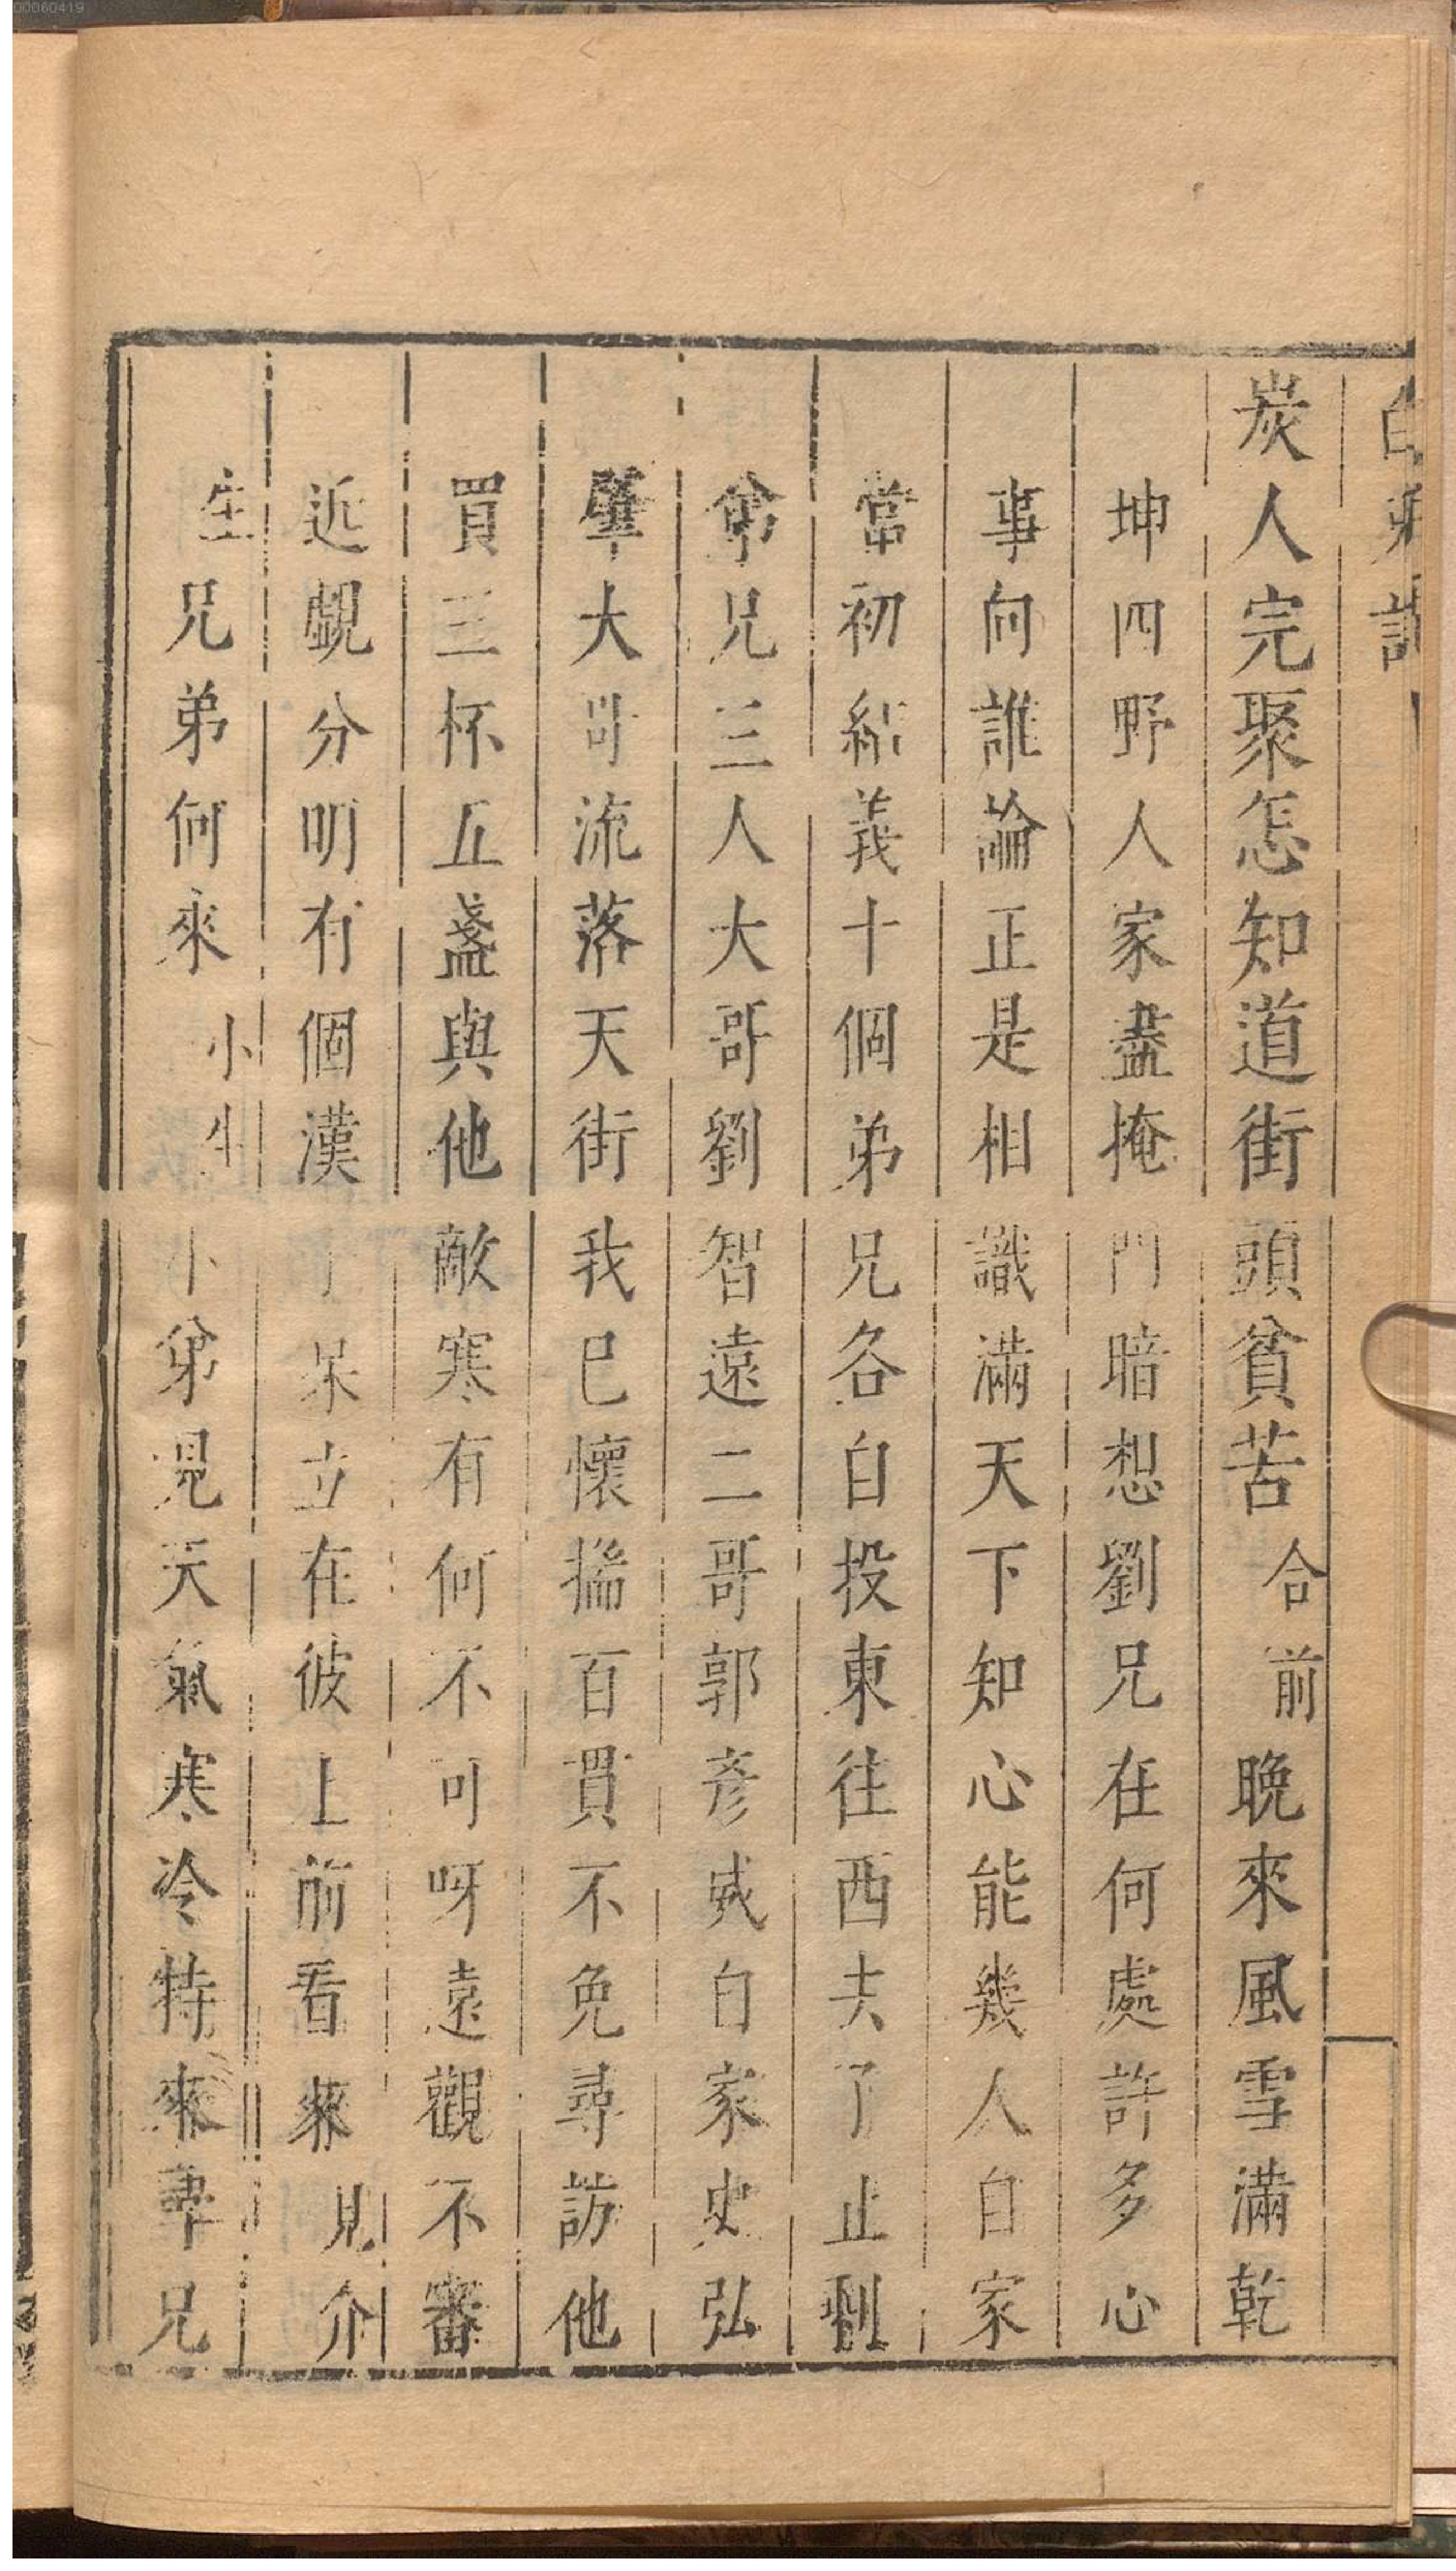 00060419
炭人完聚怎知道街頭貧苦合前晚來風雪滿乾
坤四野人家盡掩門暗想劉兄在何處許多心
事向誰論正是相識滿天下知心能幾人自家
當初結義十個弟兄各自投東往西去了止剩
弟兄三人大哥劉智遠二哥郭彥威自家史弘
肇大哥流落天街我已懷揣百貫不免尋訪他
買三杯五盞與他敵寒有何不可呀遠觀不審
近覷分明有個漢子呆立在彼上前看來見介
生兄弟何來小生小弟見天氣寒冷特來尋兄